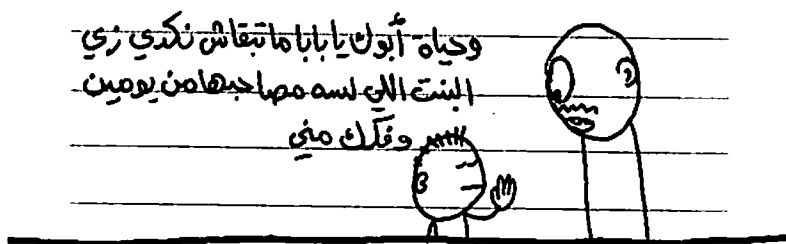 وحياة أبوك يا بابا ما تبقاش نكدي زي
البنت اللي لسه مصاحبها من يومين
وفكك مني